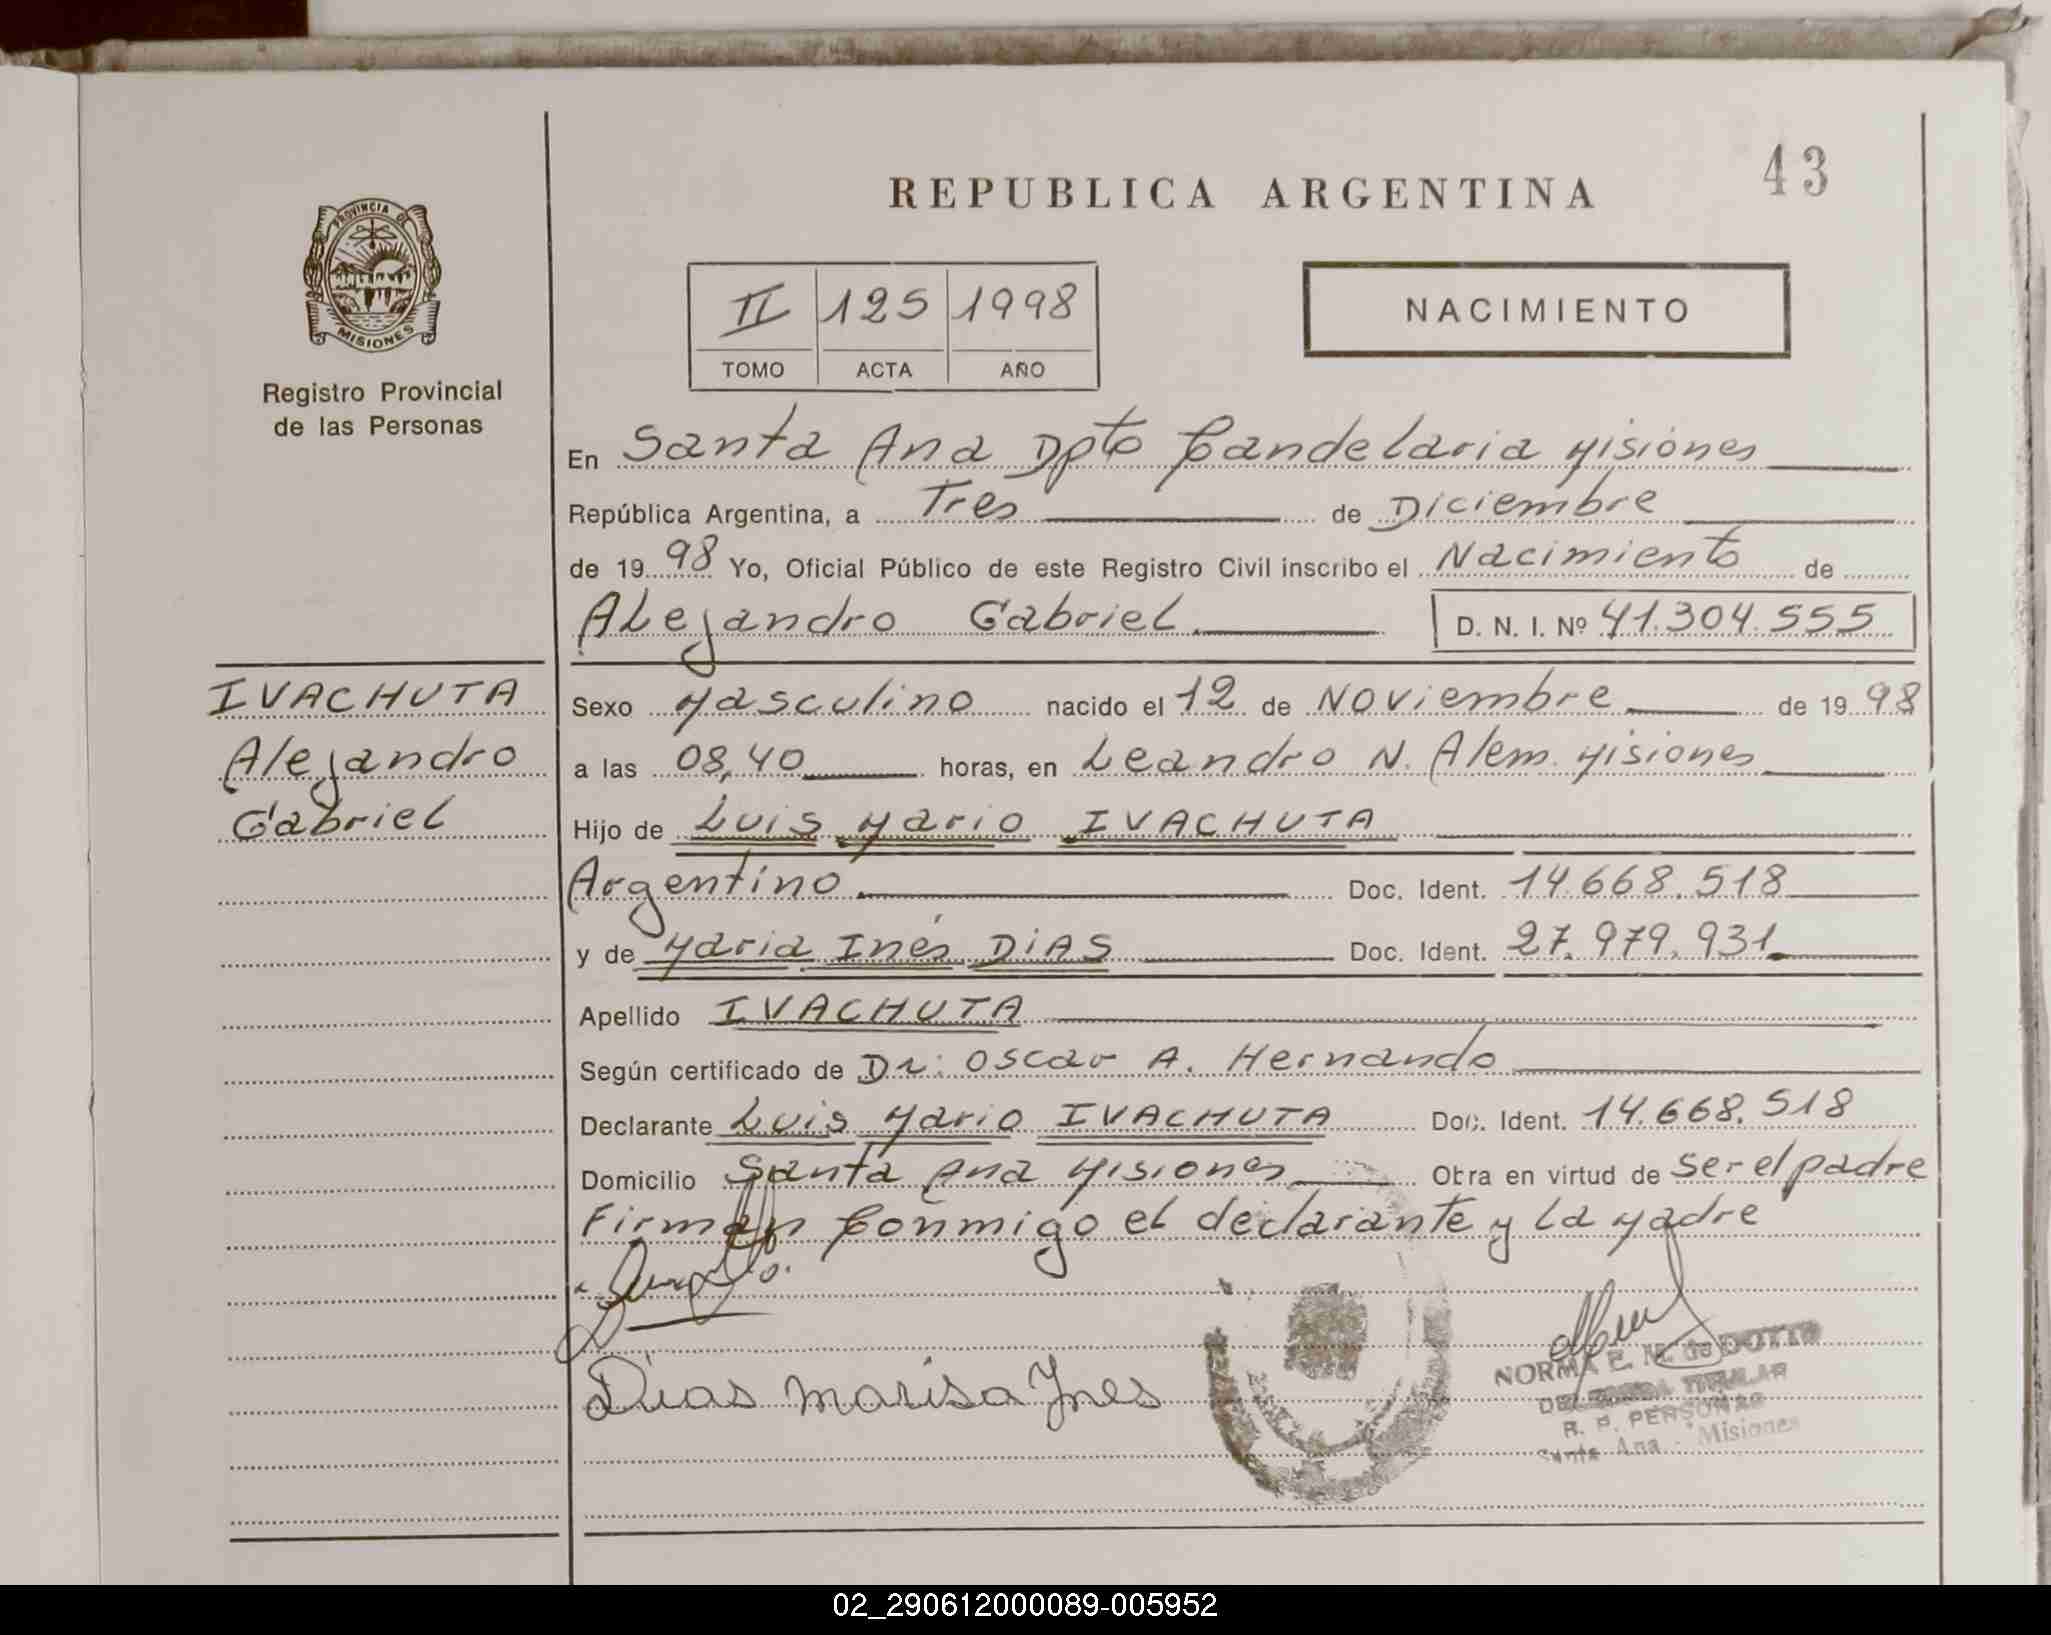 43
REPUBLICA ARGENTINA
PROVINCIA DE
MISIONES
Registro Provincial
de las Personas
II 125 1998
TOMO ACTA AÑO
NACIMIENTO
En Santa Ana Dpto Candelaria Misiones
República Argentina, a Tres de Diciembre
de 1998 Yo, Oficial Público de este Registro Civil inscribo el Nacimiento de
Alejandro Gabriel D. N. I. Nº 41.304.555
IVACHUTA
Alejandro
Gabriel
Sexo Masculino nacido el 12 de Noviembre de 1998
a las 08,40 horas, en Leandro N. Alem. Misiones
Hijo de Luis Mario IVACHUTA
Argentino Doc. Ident. 14.668.518
y de Maria Inés DiAS Doc. Ident. 27.979.931
Apellido IVACHUTA
Según certificado de Dr: Oscar A. Hernando
Declarante Luis Mario IVACHUTA Doc. Ident. 14.668.518
Domicilio Santa Ana Misiones Obra en virtud de ser el padre
Firman Conmigo el declarante y la Madre
Dias Marisa Ynes
NORMA E. M. de DOTTO
DELEGADA TITULAR
R. P. PERSONAS
Santa Ana - Misiones
02_290612000089-005952